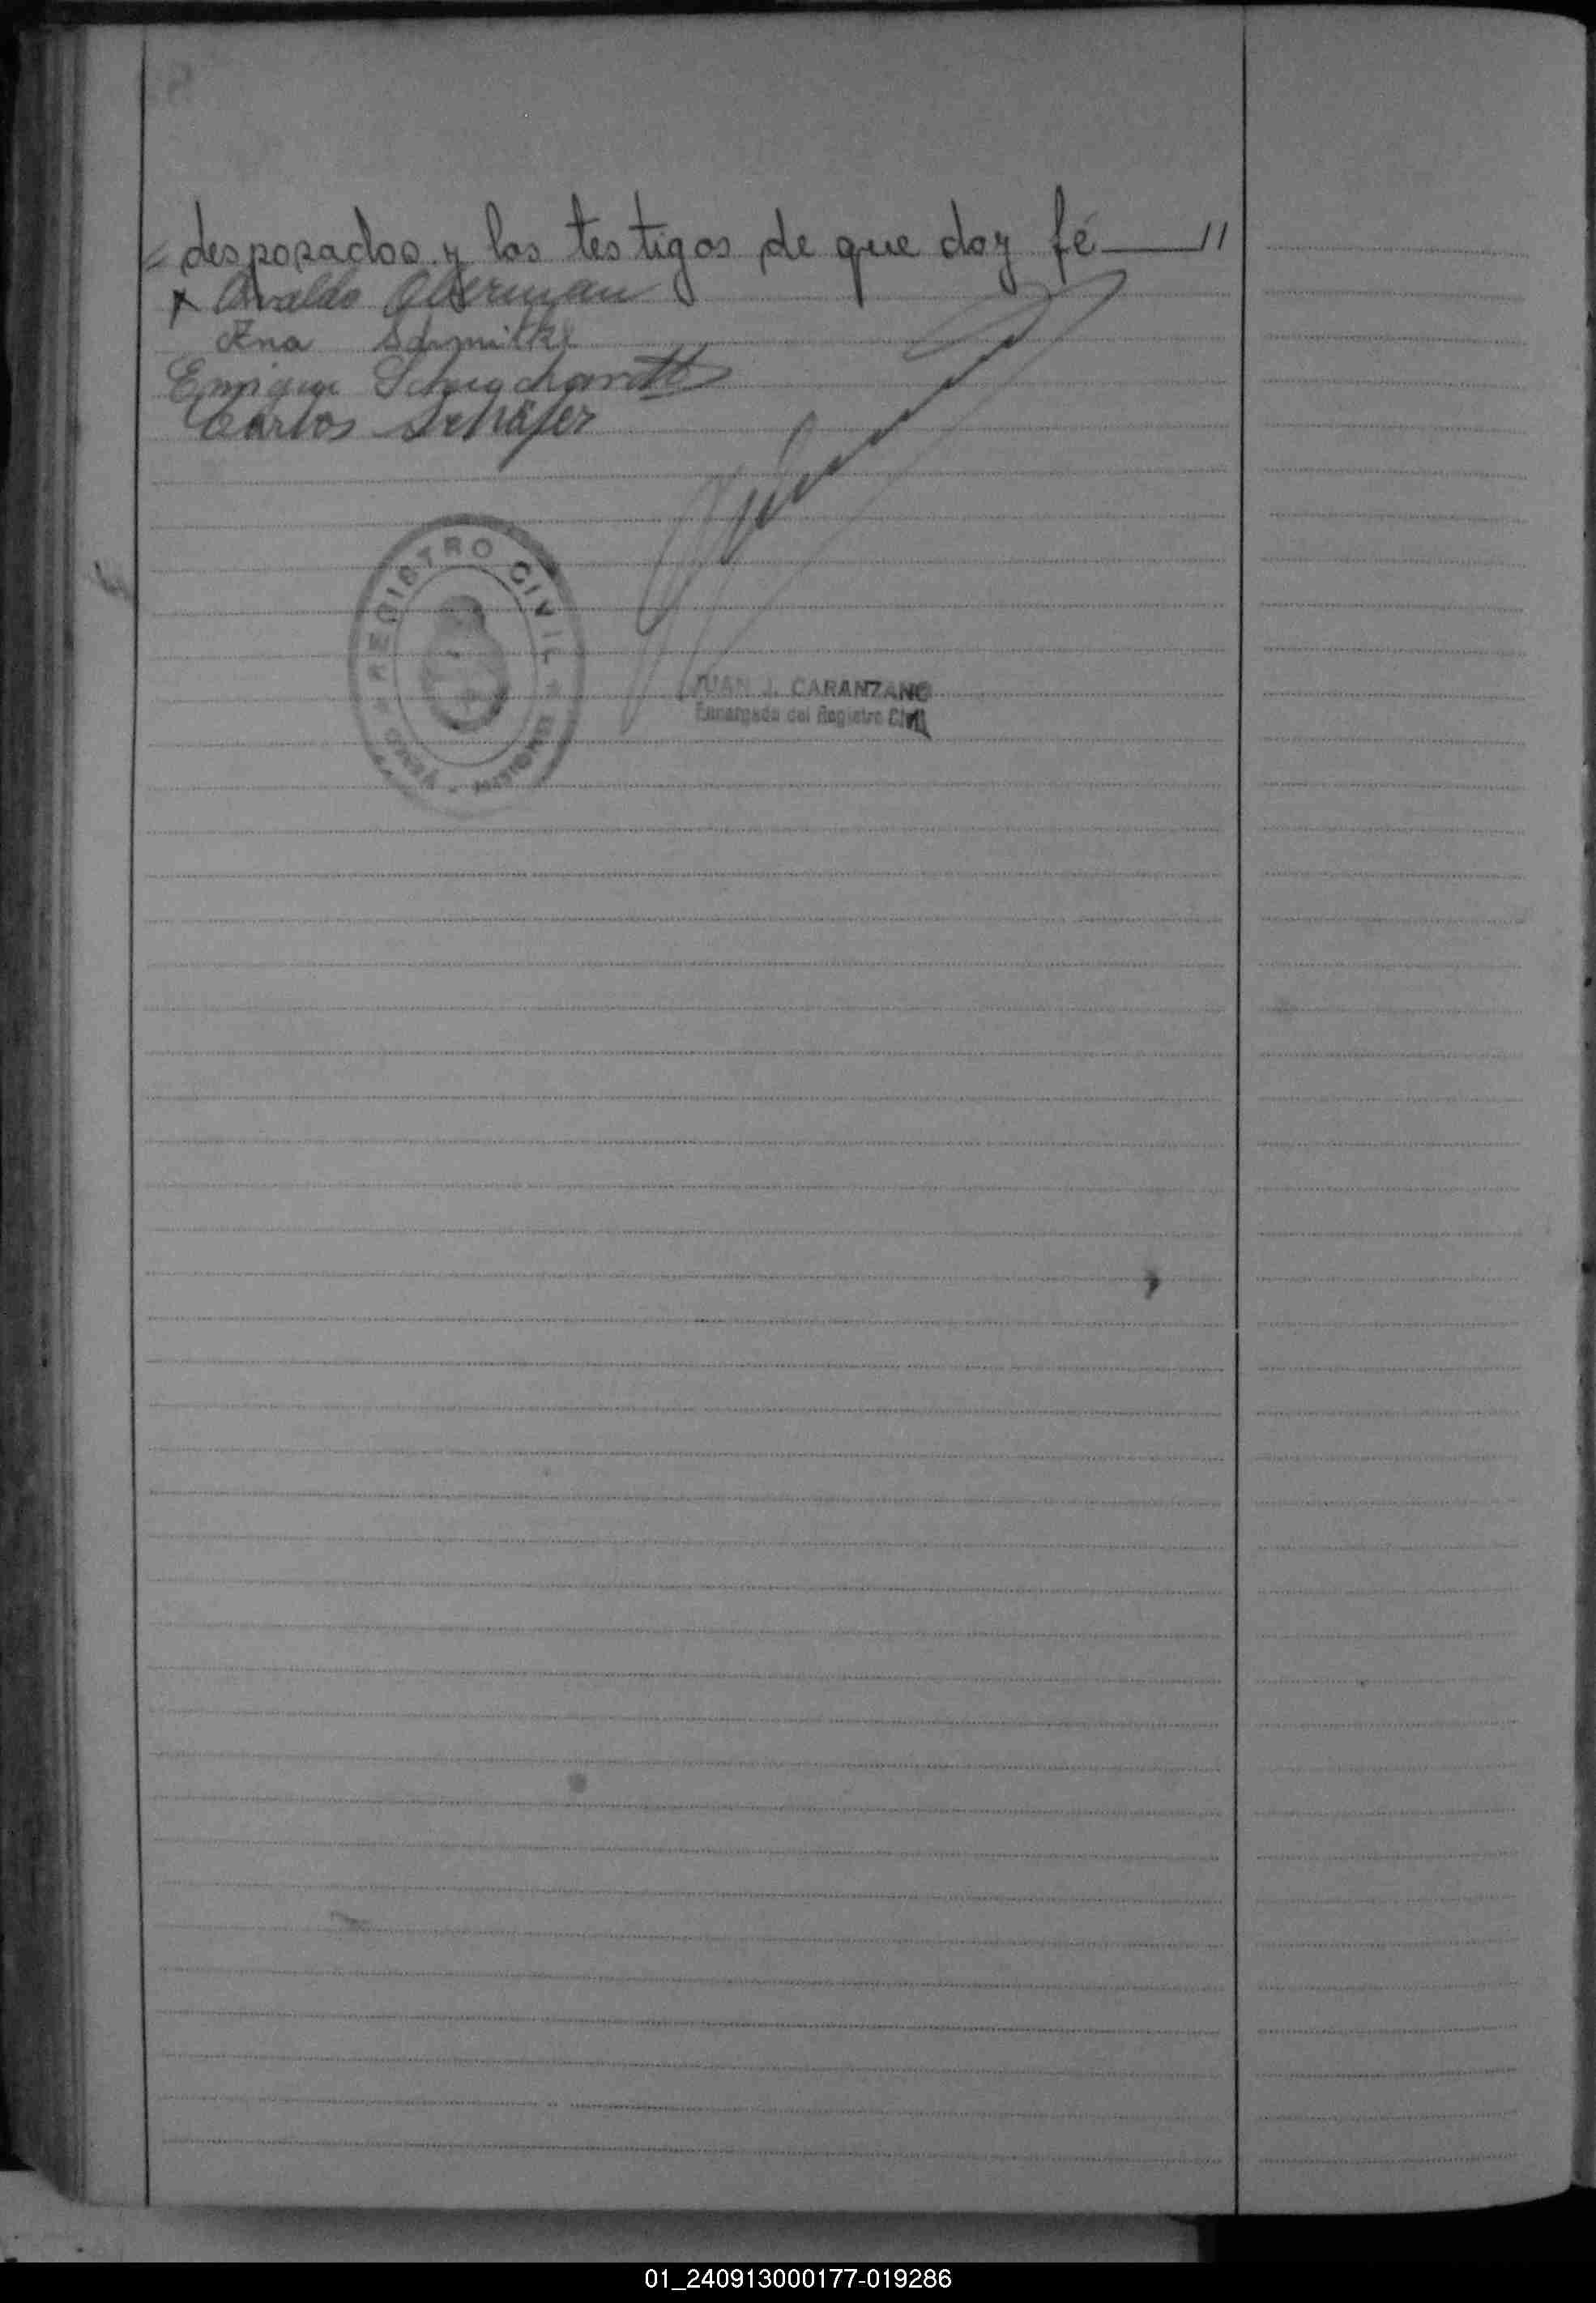 = desposados y los testigos de que doy fé——"
Osvaldo Oberman
Ana Schmitke
Enrique Schuchardt
Carlos Schäfer
REGISTRO CIVIL
JUAN J. CARANZANO
Encargado del Registro Civil
MISIONES
01_240913000177-019286